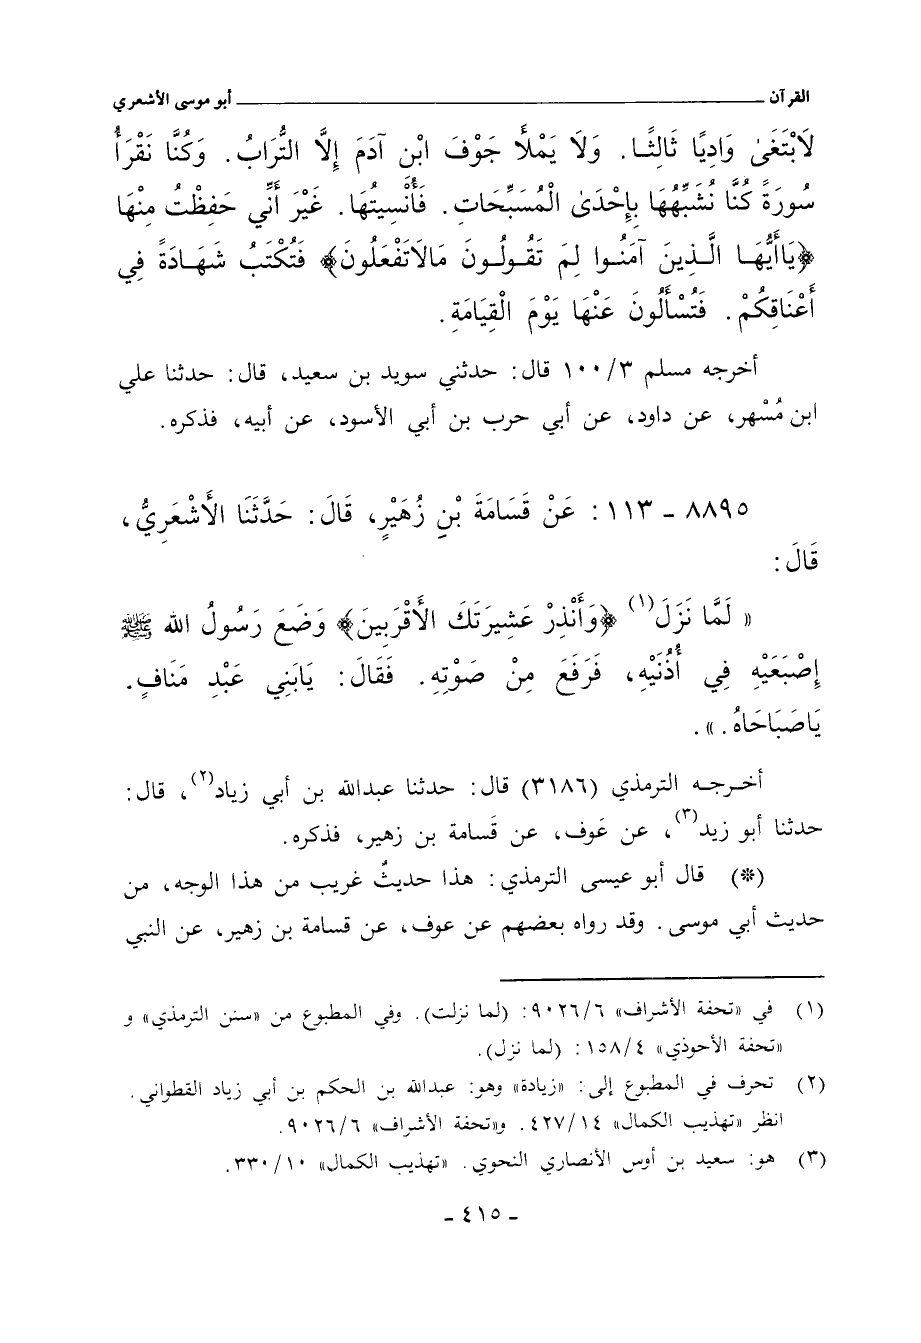 القرآن ـــــــــــــــــــــــــــــــــــــــــــــــــــــــــ أبو موسى الأشعري
لَابْتَغَىٰ وَادِيًا ثَالِثًـا. وَلَا يَمْلَأُ جَوْفَ ابْنِ آدَمَ إِلَّا التُّرَابُ. وَكُنَّا نَقْرَأُ
سُورَةً كُنَّا نُشَبِّهُهَا بِإِحْدَىٰ الْمُسَبِّحَاتِ. فَأُنْسِيتُهَا. غَيْرَ أَنِّي حَفِظْتُ مِنْهَا
﴿يَاأَيُّهَـا الَّـذِينَ آمَنُـوا لِمَ تَقُولُـونَ مَالَاتَفْعَلُونَ﴾ فَتُكْتَبُ شَهَـادَةً فِي
أَعْنَاقِكُمْ. فَتُسْأَلُونَ عَنْهَا يَوْمَ الْقِيَامَةِ.
أخرجه مسلم ٣/ ١٠٠ قال: حدثني سويد بن سعيد، قال: حدثنا علي
ابن مُسْهر، عن داود، عن أبي حرب بن أبي الأسود، عن أبيه، فذكره.
٨٨٩٥ ـ ١١٣: عَنْ قَسَامَةَ بْنِ زُهَيْرٍ، قَالَ: حَدَّثَنَا الْأَشْعَرِيُّ،
قَالَ:
« لَمَّا نَزَلَ(١) ﴿وَأَنْذِرْ عَشِيرَتَكَ الْأَقْرَبِينَ﴾ وَضَعَ رَسُولُ الله ﷺ
إِصْبَعَيْهِ فِي أُذُنَيْهِ، فَرَفَعَ مِنْ صَوْتِهِ. فَقَالَ: يَابَنِي عَبْدِ مَنَافٍ.
يَاصَبَاحَاهُ.».
أخـرجـه الترمذي (٣١٨٦) قال: حدثنا عبدالله بن أبي زياد(٢)، قال:
حدثنا أبو زيد(٣)، عن عَوف، عن قَسامة بن زهير، فذكره.
(*) قال أبو عيسى الترمذي: هذا حديثٌ غريب من هذا الوجه، من
حديث أبي موسى. وقد رواه بعضهم عن عوف، عن قسامة بن زهير، عن النبي
(١) في «تحفة الأشراف» ٦/ ٩٠٢٦: (لما نزلت). وفي المطبوع من «سنن الترمذي» و
«تحفة الأحوذي» ٤/ ١٥٨: (لما نزل).
(٢) تحرف في المطبوع إلى: «زيادة» وهو: عبدالله بن الحكم بن أبي زياد القطواني.
انظر «تهذيب الكمال» ١٤/ ٤٢٧. و«تحفة الأشراف» ٦/ ٩٠٢٦.
(٣) هو: سعيد بن أوس الأنصاري النحوي. «تهذيب الكمال» ١٠/ ٣٣٠.
ـ ٤١٥ ـ